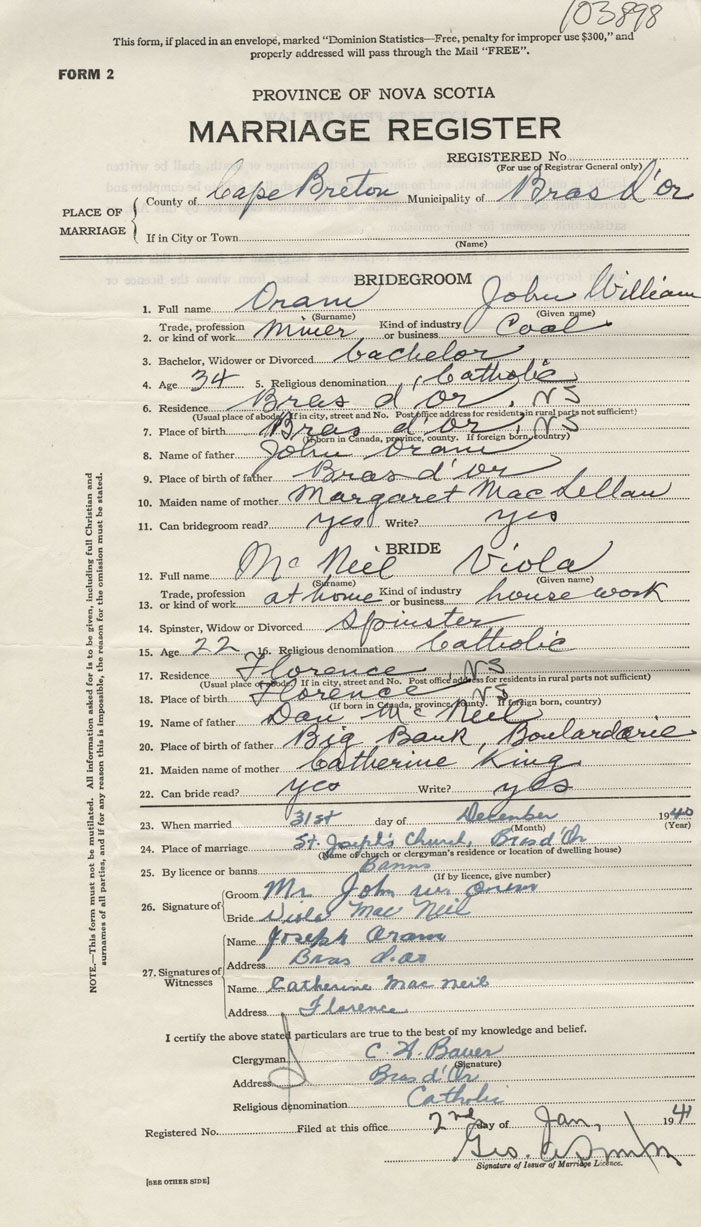 103898
This form, if placed in an envelope, marked "Dominion Statistics—Free, penalty for improper use $300," and
properly addressed will pass through the Mail "FREE".
FORM 2
PROVINCE OF NOVA SCOTIA
MARRIAGE REGISTER
REGISTERED No.
(For use of Registrar General only)
PLACE OF MARRIAGE
County of Cape Breton Municipality of Bras d'or
If in City or Town
(Name)
BRIDEGROOM
1. Full name Oram John William
(Surname) (Given name)
2. Trade, profession or kind of work miner Kind of industry or business Coal
3. Bachelor, Widower or Divorced bachelor
4. Age 34 5. Religious denomination Catholic
6. Residence Bras d'or, NS
(Usual place of abode. If in city, street and No. Post office address for residents in rural parts not sufficient)
7. Place of birth Bras d'or, NS
(If born in Canada, province, county. If foreign born, country)
8. Name of father John Oram
9. Place of birth of father Bras d'or
10. Maiden name of mother Margaret MacLellan
11. Can bridegroom read? yes Write? yes
BRIDE
12. Full name McNeil Viola
(Surname) (Given name)
13. Trade, profession or kind of work at home Kind of industry or business housework
14. Spinster, Widow or Divorced Spinster
15. Age 22 16. Religious denomination Catholic
17. Residence Florence, NS
(Usual place of abode. If in city, street and No. Post office address for residents in rural parts not sufficient)
18. Place of birth Florence NS
(If born in Canada, province, county. If foreign born, country)
19. Name of father Dan McNeil
20. Place of birth of father Big Bank, Boularderie
21. Maiden name of mother Catherine King
22. Can bride read? yes Write? yes
23. When married 31st day of December 1940
(Month) (Year)
24. Place of marriage St. Joseph's Church, Bras d'Or
(Name of church or clergyman's residence or location of dwelling house)
25. By licence or banns Banns
(If by licence, give number)
26. Signature of
Groom Mr John Wm Oram
Bride Viola Mac Neil
27. Signatures of Witnesses
Name Joseph Oram
Address Bras d.or
Name Catherine Mac Neil
Address Florence
I certify the above stated particulars are true to the best of my knowledge and belief.
Clergyman C. H. Bauer
(Signature)
Address Bras d'Or
Religious denomination Catholic
Registered No. Filed at this office 2nd day of Jan, 1941
Geo.
Signature of Issuer of Marriage Licence.
[SEE OTHER SIDE]
NOTE.—This form must not be mutilated. All information asked for is to be given, including full Christian and
surnames of all parties, and if for any reason this is impossible, the reason for the omission must be stated.